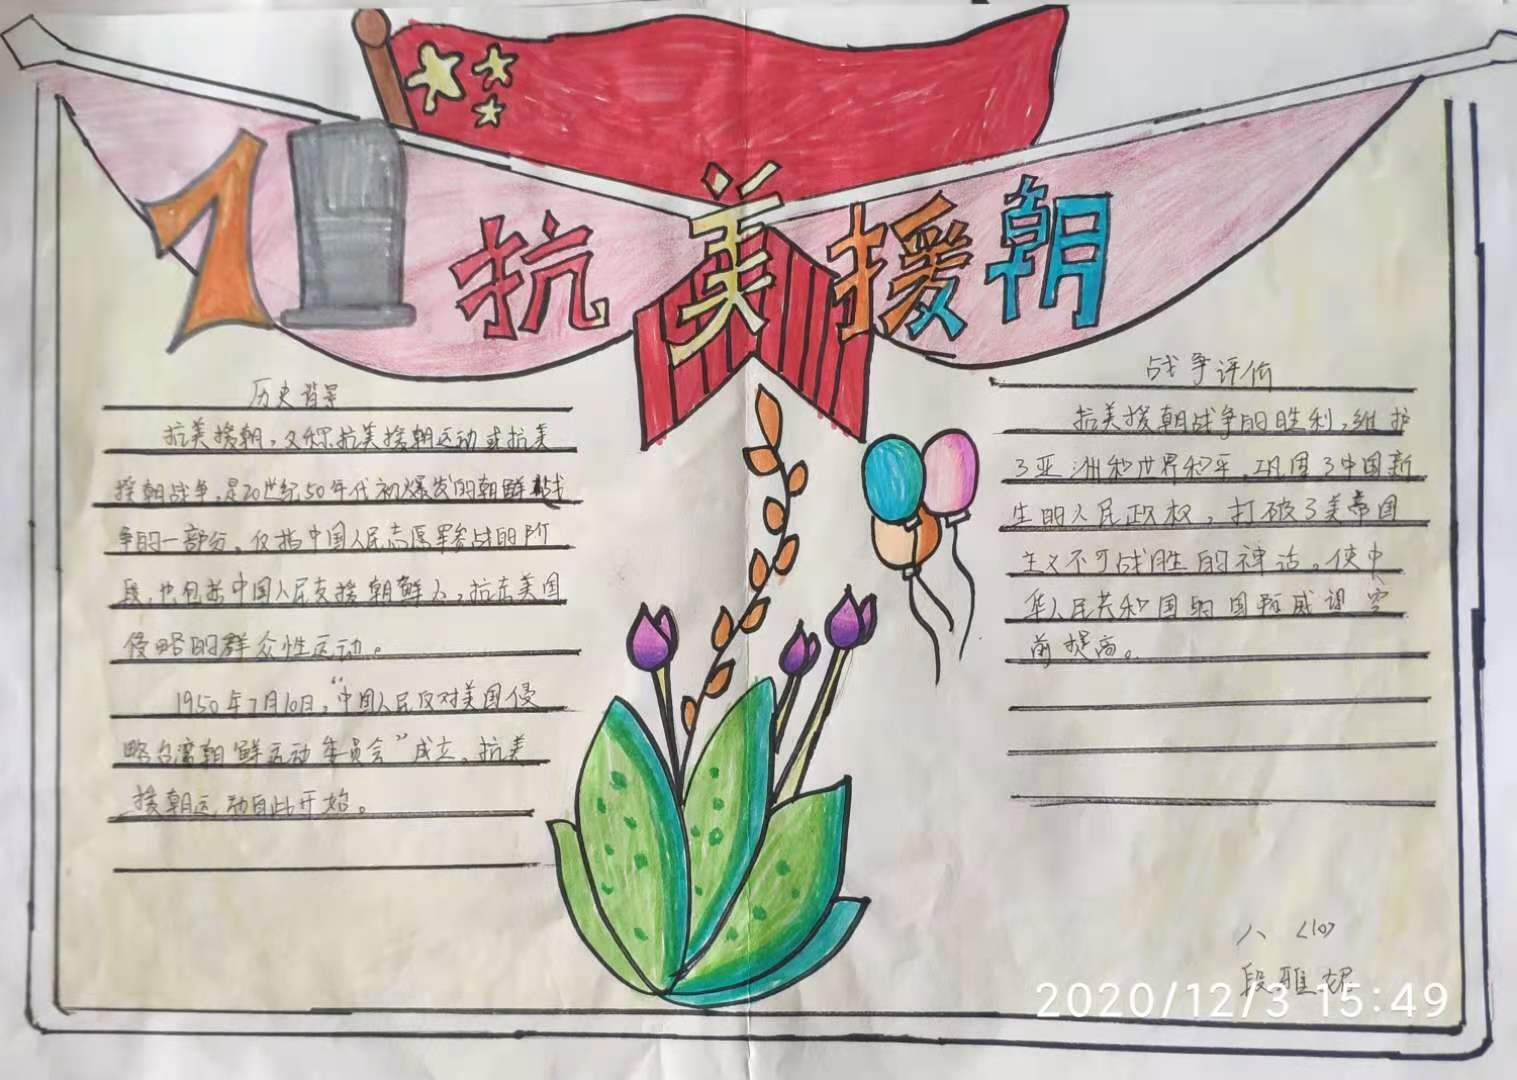 抗美援朝
历史背景
抗美援朝,又称抗美援朝运动或抗美
援朝战争,是20世纪50年代初爆发的朝鲜战
争的一部分,仅指中国人民志愿军参战的阶
段,也包括中国人民支援朝鲜人,抗击美国
侵略的群众性运动。
1950年7月10日,“中国人民反对美国侵
略台湾朝鲜运动委员会”成立,抗美
援朝运动自此开始。
战争评价
抗美援朝战争的胜利,维护
了亚洲和世界和平,巩固了中国新
生的人民政权,打破了美帝国
主义不可战胜的神话。使中
华人民共和国的国际威望空
前提高。
八〈10〉
段雅妮
2020/12/3 15:49